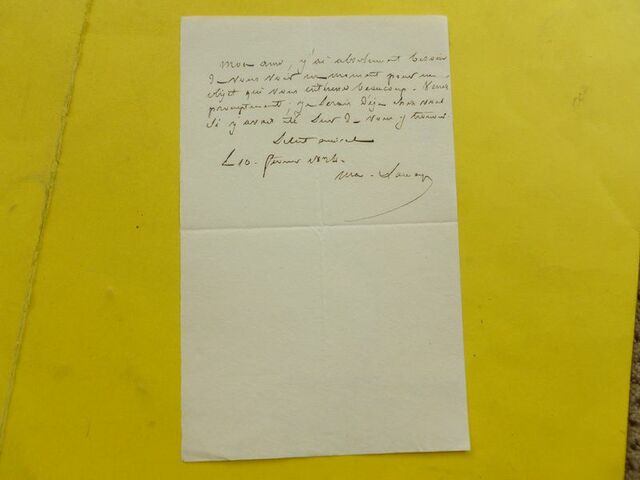 mon ami, y'ai absolument besoin
De vous voir un moment pour un
objet qui vous intéresse beaucoup. Venez
promptement; ye serais Déja chez vous
Si y'avais été Sûr De vous y trouver.
Salut amical
Le 10. février